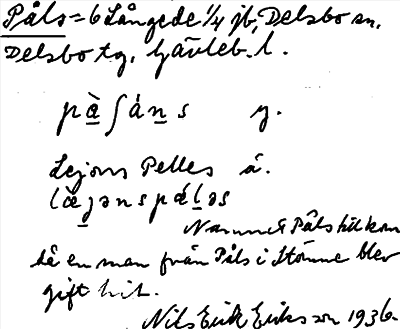 Påls = 6 Långede 1/4 jb, Delsbo sn,
Delsbo tg, Gävleb. l.
y.
Lejons Pelles å.
Namnet Påls hit kom
då en man från Påls i Stömne blev
gift hit.
Nils Erik Eriksson 1936